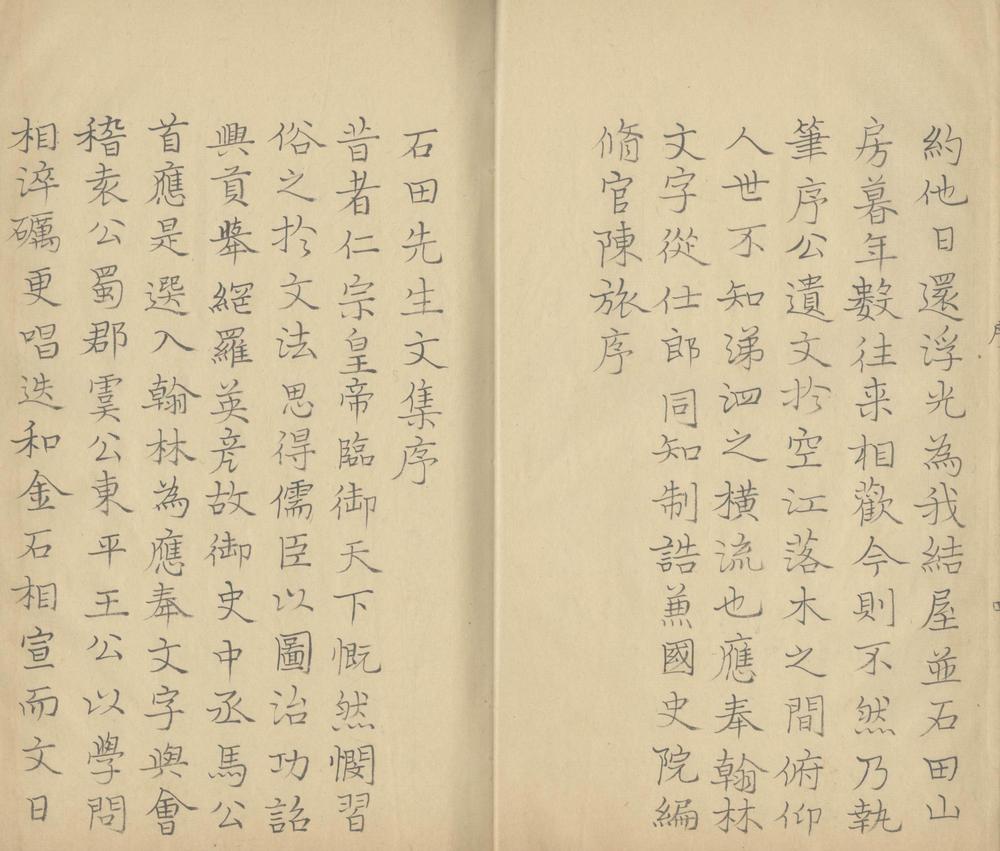 約他日還浮光為我結屋並石田山
房暮年數徃來相歡今則不然乃執
筆序公遺文扵空江落木之間俯仰
人世不知涕泗之橫流也應奉翰林
文字從仕郎同知制誥兼國史院編
脩官陳旅序
石田先生文集序
昔者仁宗皇帝臨御天下慨然憫習
俗之扵文法思得儒臣以圖治功詔
興貢舉網羅英彥故御史中丞馬公
首應是選入翰林為應奉文字與會
稽袁公蜀郡虞公東平王公以學問
相淬礪更唱迭和金石相宣而文日